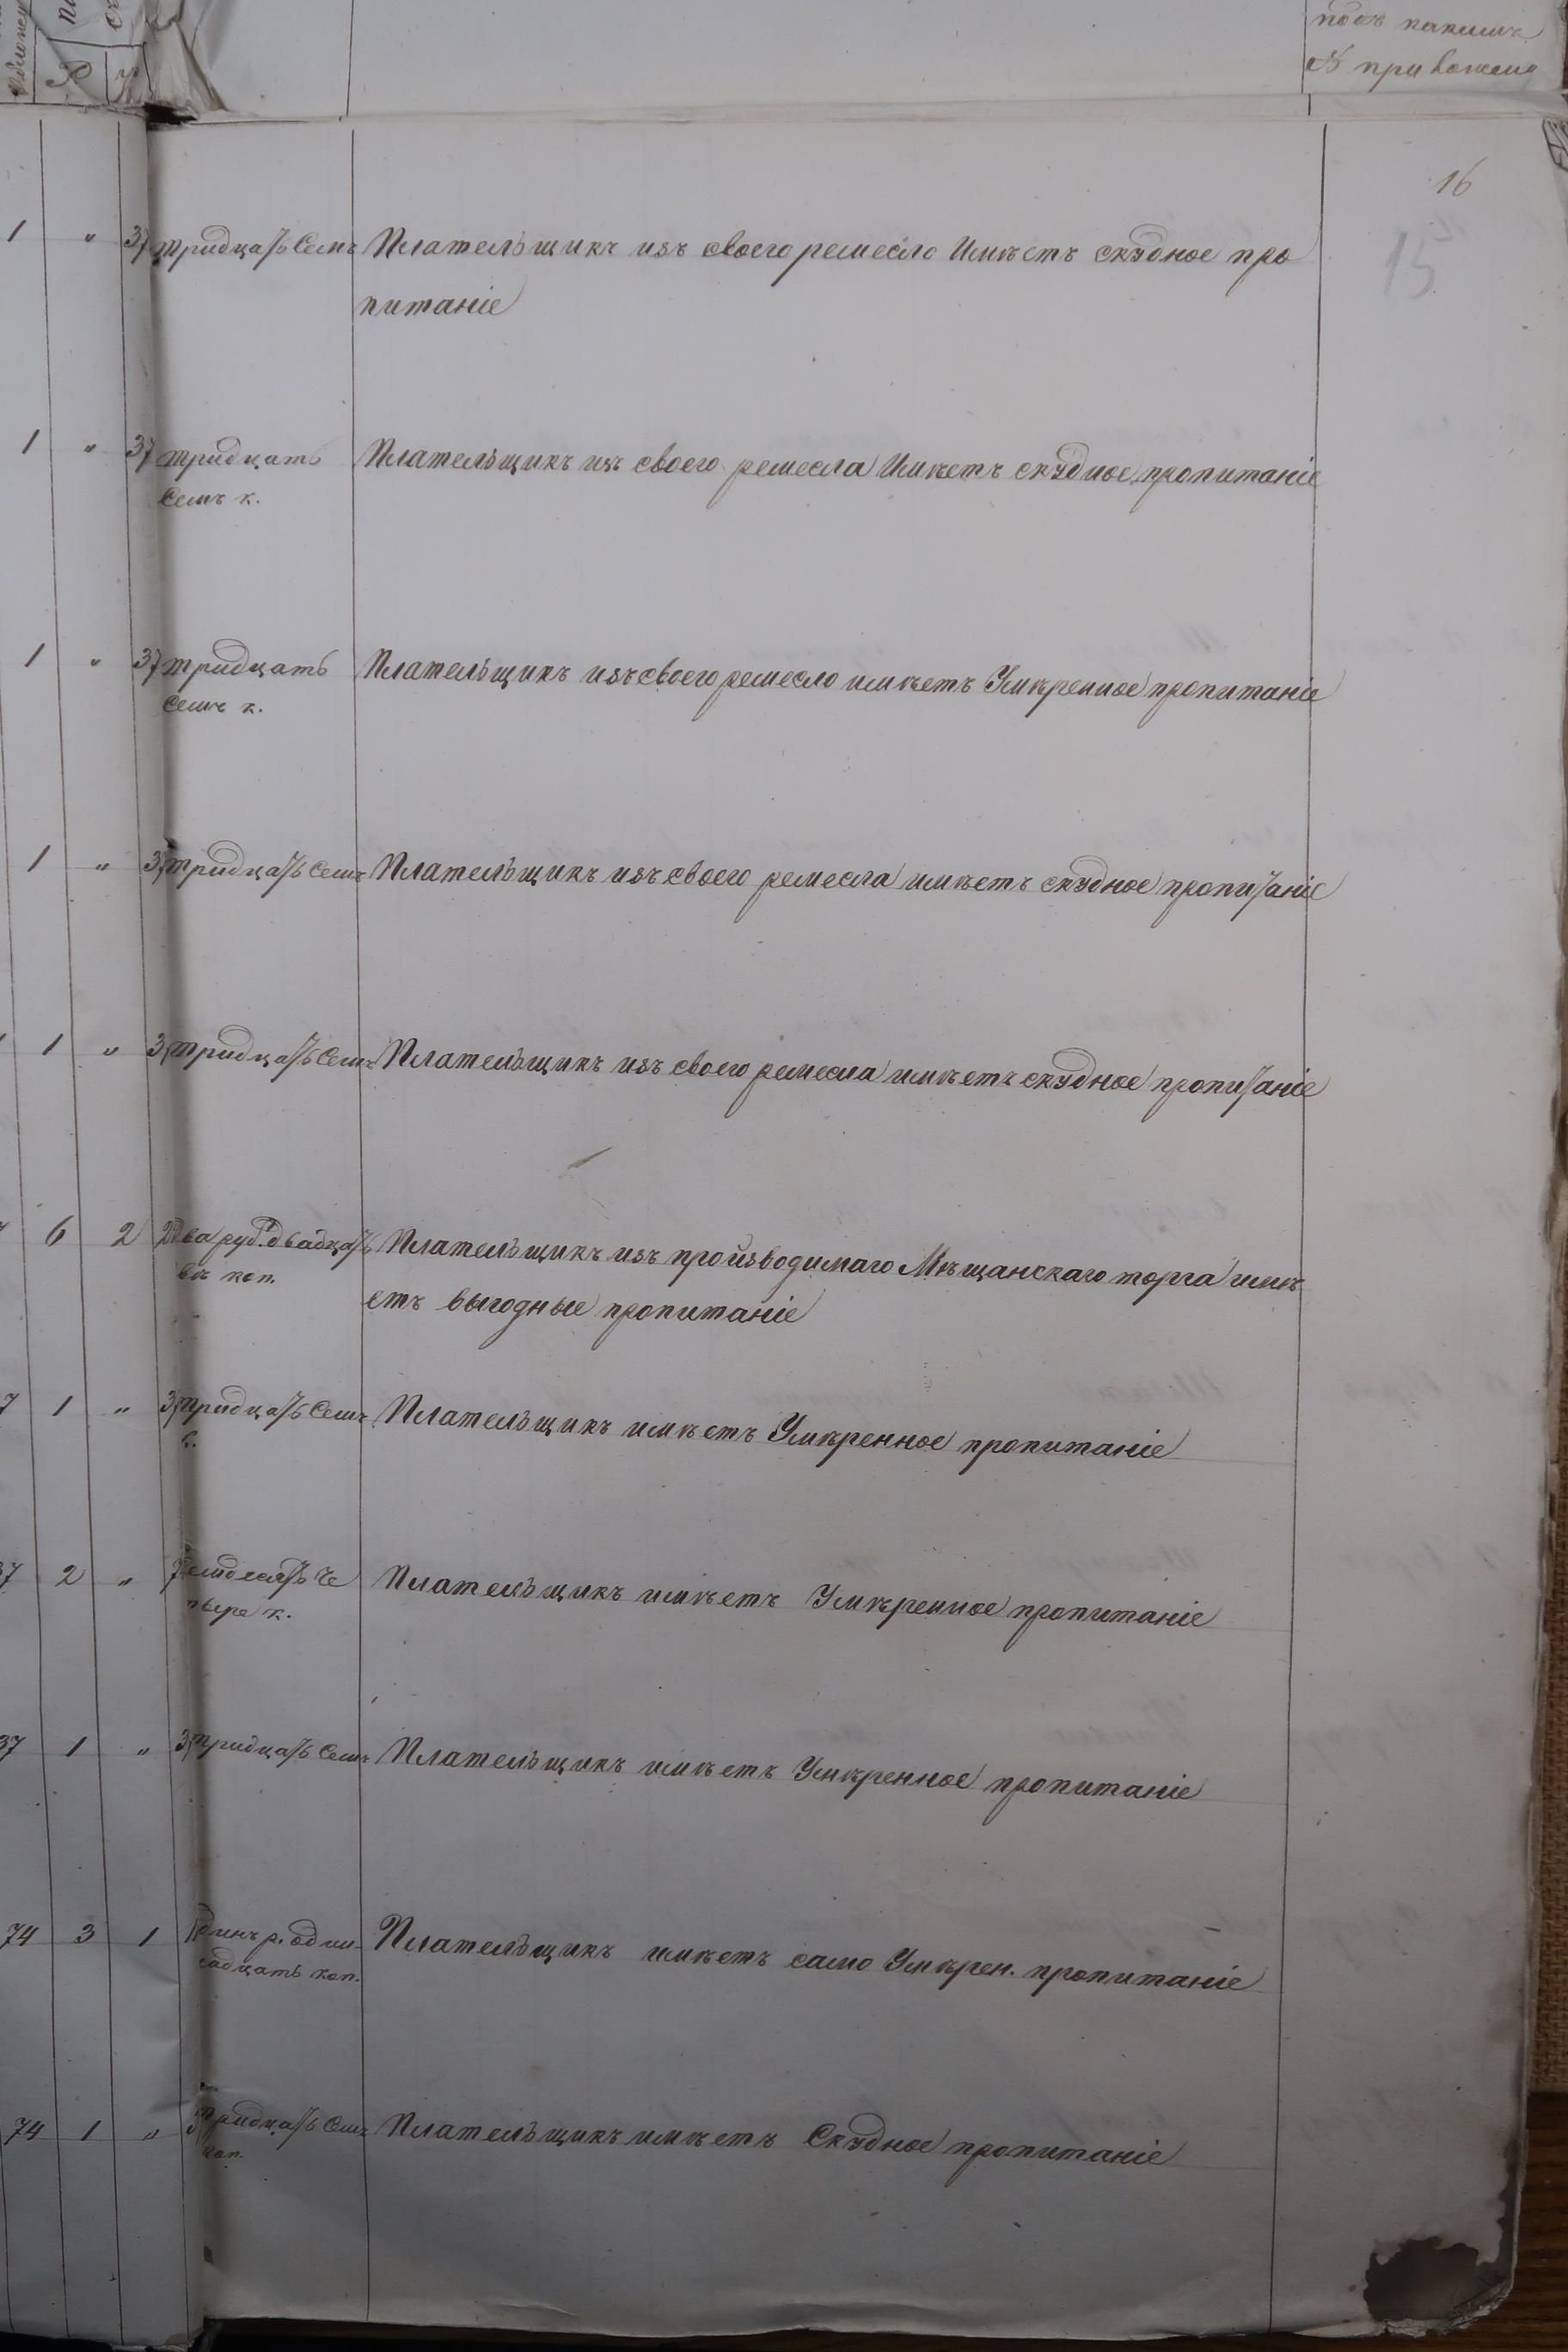 подъ какимъ
№ приложено
16
15
1 " 37 тридцать семъ Плательщикъ изъ своего ремесло Имѣетъ скудное про
питаніе
1 " 37 тридцать Плательщикъ изъ своего ремесла Имѣетъ скудное пропитаніе
семъ к.
1 " 37 тридцать Плательщикъ изъ своего ремесло имѣетъ Умѣренное пропитаніе
семъ к.
1 " 37 тридцать семъ Плательщикъ изъ своего ремесла имѣетъ скудное пропитаніе
1 " 37 тридцать семъ Плательщикъ изъ своего ремесла имѣетъ скудное пропитаніе
6 2 два руб. двадцать Плательщикъ изъ производимаго Мѣщанскаго торга имѣ
коп. етъ выгодные пропитаніе
7 1 " 37 тридцать семъ Плательщикъ имѣетъ Умѣренное пропитаніе
37 2 " семдесятъ че Плательщикъ имѣетъ Умѣренное пропитаніе
тыре к.
37 1 " 37 тридцать семъ Плательщикъ имѣетъ Умѣренное пропитаніе
74 3 1 одинъ р. один Плательщикъ имѣетъ само Умѣрен. пропитаніе
надцать коп.
74 1 " тридцать семъ Плательщикъ имѣетъ Скудное пропитаніе
коп.